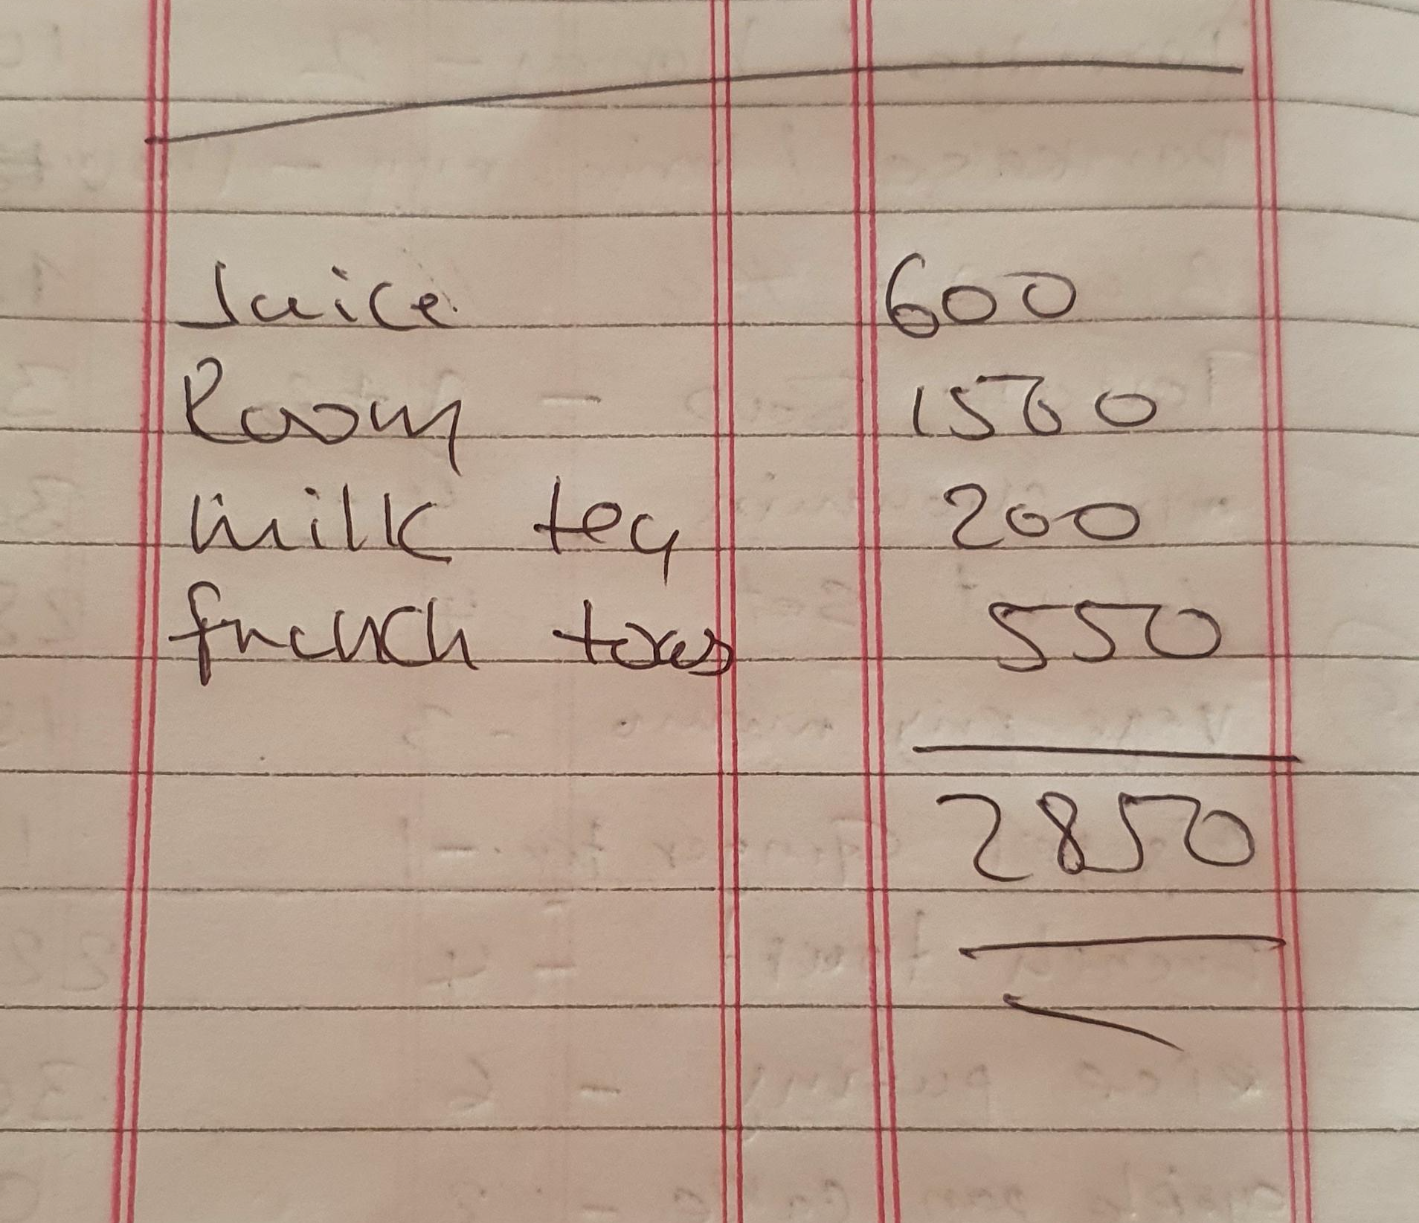 Juice 600
Room 1500
milk tea 200
french toas 550
2850